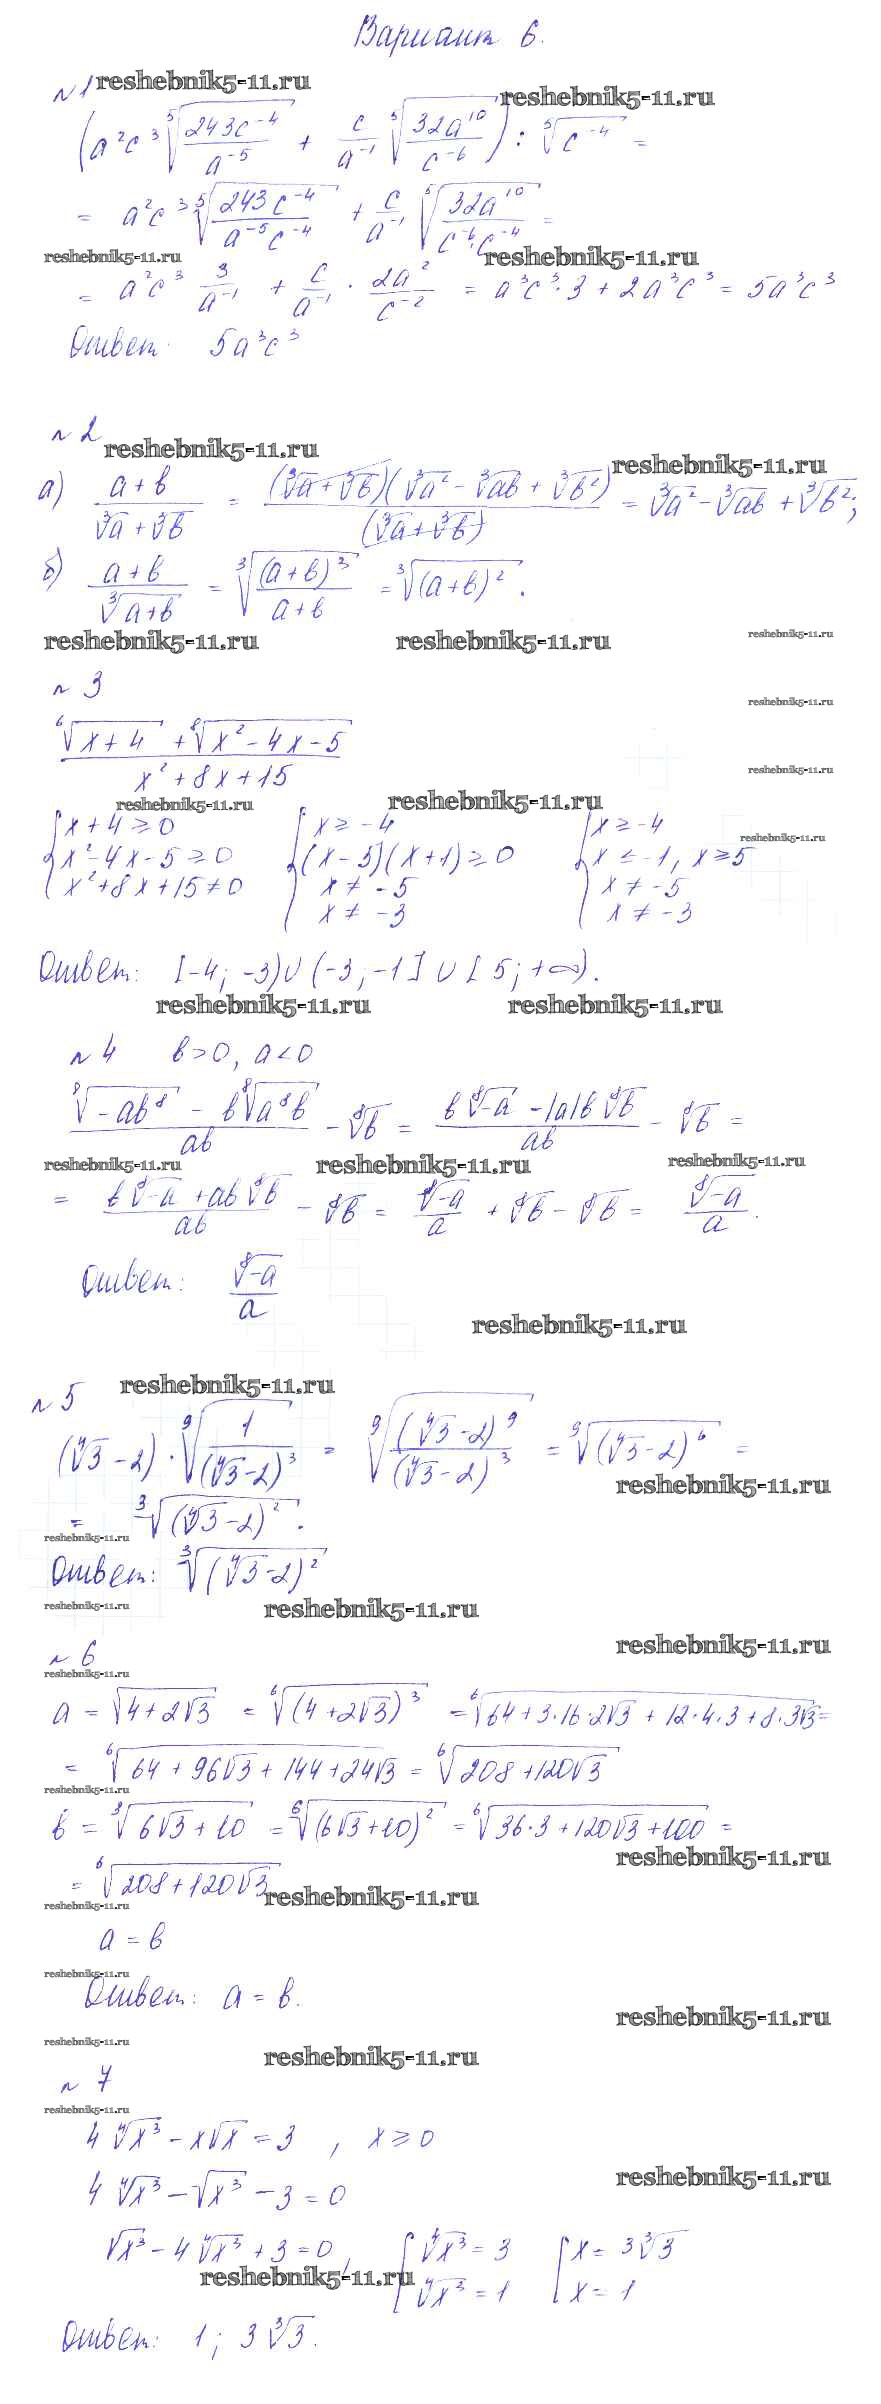 Вариант 6.
№1 reshebnik5-11.ru
reshebnik5-11.ru
(a²c³ ⁵√(243c⁻⁴/a⁻⁵) + c/a⁻¹ ⁵√(32a¹⁰/c⁻⁶)) : ⁵√(c⁻⁴) =
= a²c³ ⁵√(243c⁻⁴/(a⁻⁵c⁻⁴)) + c/a⁻¹ ⁵√(32a¹⁰/(c⁻⁶·c⁻⁴)) =
reshebnik5-11.ru reshebnik5-11.ru
= a²c³ 3/a⁻¹ + c/a⁻¹ · 2a²/c⁻² = a³c³·3 + 2a³c³ = 5a³c³
Ответ: 5a³c³
№2
reshebnik5-11.ru reshebnik5-11.ru
а) (a+b)/(³√a + ³√b) = (³√a + ³√b)(³√a² - ³√ab + ³√b²)/(³√a + ³√b) = ³√a² - ³√ab + ³√b²;
б) (a+b)/³√(a+b) = ³√((a+b)³/(a+b)) = ³√(a+b)².
reshebnik5-11.ru reshebnik5-11.ru reshebnik5-11.ru
№3
reshebnik5-11.ru
(⁶√(x+4) + ⁸√(x²-4x-5))/(x²+8x+15)
reshebnik5-11.ru
reshebnik5-11.ru reshebnik5-11.ru
reshebnik5-11.ru
{ x+4≥0 { x≥-4 { x≥-4
x²-4x-5≥0 (x-5)(x+1)≥0 x≤-1, x≥5
x²+8x+15≠0 x≠-5 x≠-5
x≠-3 x≠-3
Ответ: [-4; -3)∪(-3; -1]∪[5; +∞).
reshebnik5-11.ru reshebnik5-11.ru
№4 b>0, a<0
(⁸√(-ab⁸) - b ⁸√(a⁸b))/ab - ⁸√b = (b ⁸√-a - |a|b ⁸√b)/ab - ⁸√b =
reshebnik5-11.ru reshebnik5-11.ru reshebnik5-11.ru
= (b ⁸√-a + ab ⁸√b)/ab - ⁸√b = ⁸√-a/a + ⁸√b - ⁸√b = ⁸√-a/a.
Ответ: ⁸√-a/a
reshebnik5-11.ru
reshebnik5-11.ru
№5
(⁴√3-2) · ⁹√(1/(⁴√3-2)³) = ⁹√((⁴√3-2)⁹/(⁴√3-2)³) = ⁹√(⁴√3-2)⁶ =
reshebnik5-11.ru
= ³√(⁴√3-2)².
reshebnik5-11.ru
Ответ: ³√(⁴√3-2)²
reshebnik5-11.ru reshebnik5-11.ru
reshebnik5-11.ru
№6
reshebnik5-11.ru
a = √(4+2√3) = ⁶√(4+2√3)³ = ⁶√(64+3·16·2√3 + 12·4·3 + 8·3√3) =
= ⁶√(64+96√3+144+24√3) = ⁶√(208+120√3)
reshebnik5-11.ru
b = ³√(6√3+10) = ⁶√(6√3+10)² = ⁶√(36·3+120√3+100) =
reshebnik5-11.ru
= ⁶√(208+120√3)
reshebnik5-11.ru
reshebnik5-11.ru
a = b
reshebnik5-11.ru
Ответ: a = b.
reshebnik5-11.ru
reshebnik5-11.ru
reshebnik5-11.ru
№7
reshebnik5-11.ru
4 ⁴√x³ - x√x = 3 , x≥0
reshebnik5-11.ru
4 ⁴√x³ - √x³ - 3 = 0
√x³ - 4 ⁴√x³ + 3 = 0, [ ⁴√x³ = 3 [ x = 3 ³√3
reshebnik5-11.ru ⁴√x³ = 1 x = 1
Ответ: 1; 3 ³√3.